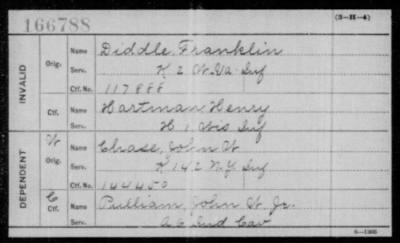 166788
(3-H-4)
INVALID
Orig. Name Diddle, Franklin
Serv. K 2 W. Va. Inf
Ctf. No. 117888
Ctf. Name Hartman, Henry
Serv. H 1 Wis Inf
DEPENDENT
W Orig. Name Chase, John W
Serv. K 142 N.Y. Inf
Ctf. No. 144450
C Ctf. Name Pulliam, John W. Jr.
Serv. A 6 Ind Cav